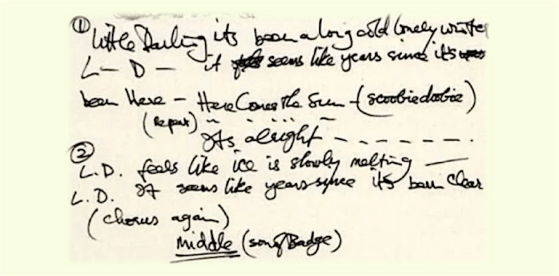 ① Little Darling its been a long cold lonely winter
L— D— it feels seems like years since it's
been Here — Here Comes the Sun — (scoobiedoobie)
(Repeat) " " " "
Its alright - - - - - - -
② L.D. feels like ice is slowly melting —
L.D. It seems like years since its been clear
(chorus again)
middle (song Badge)